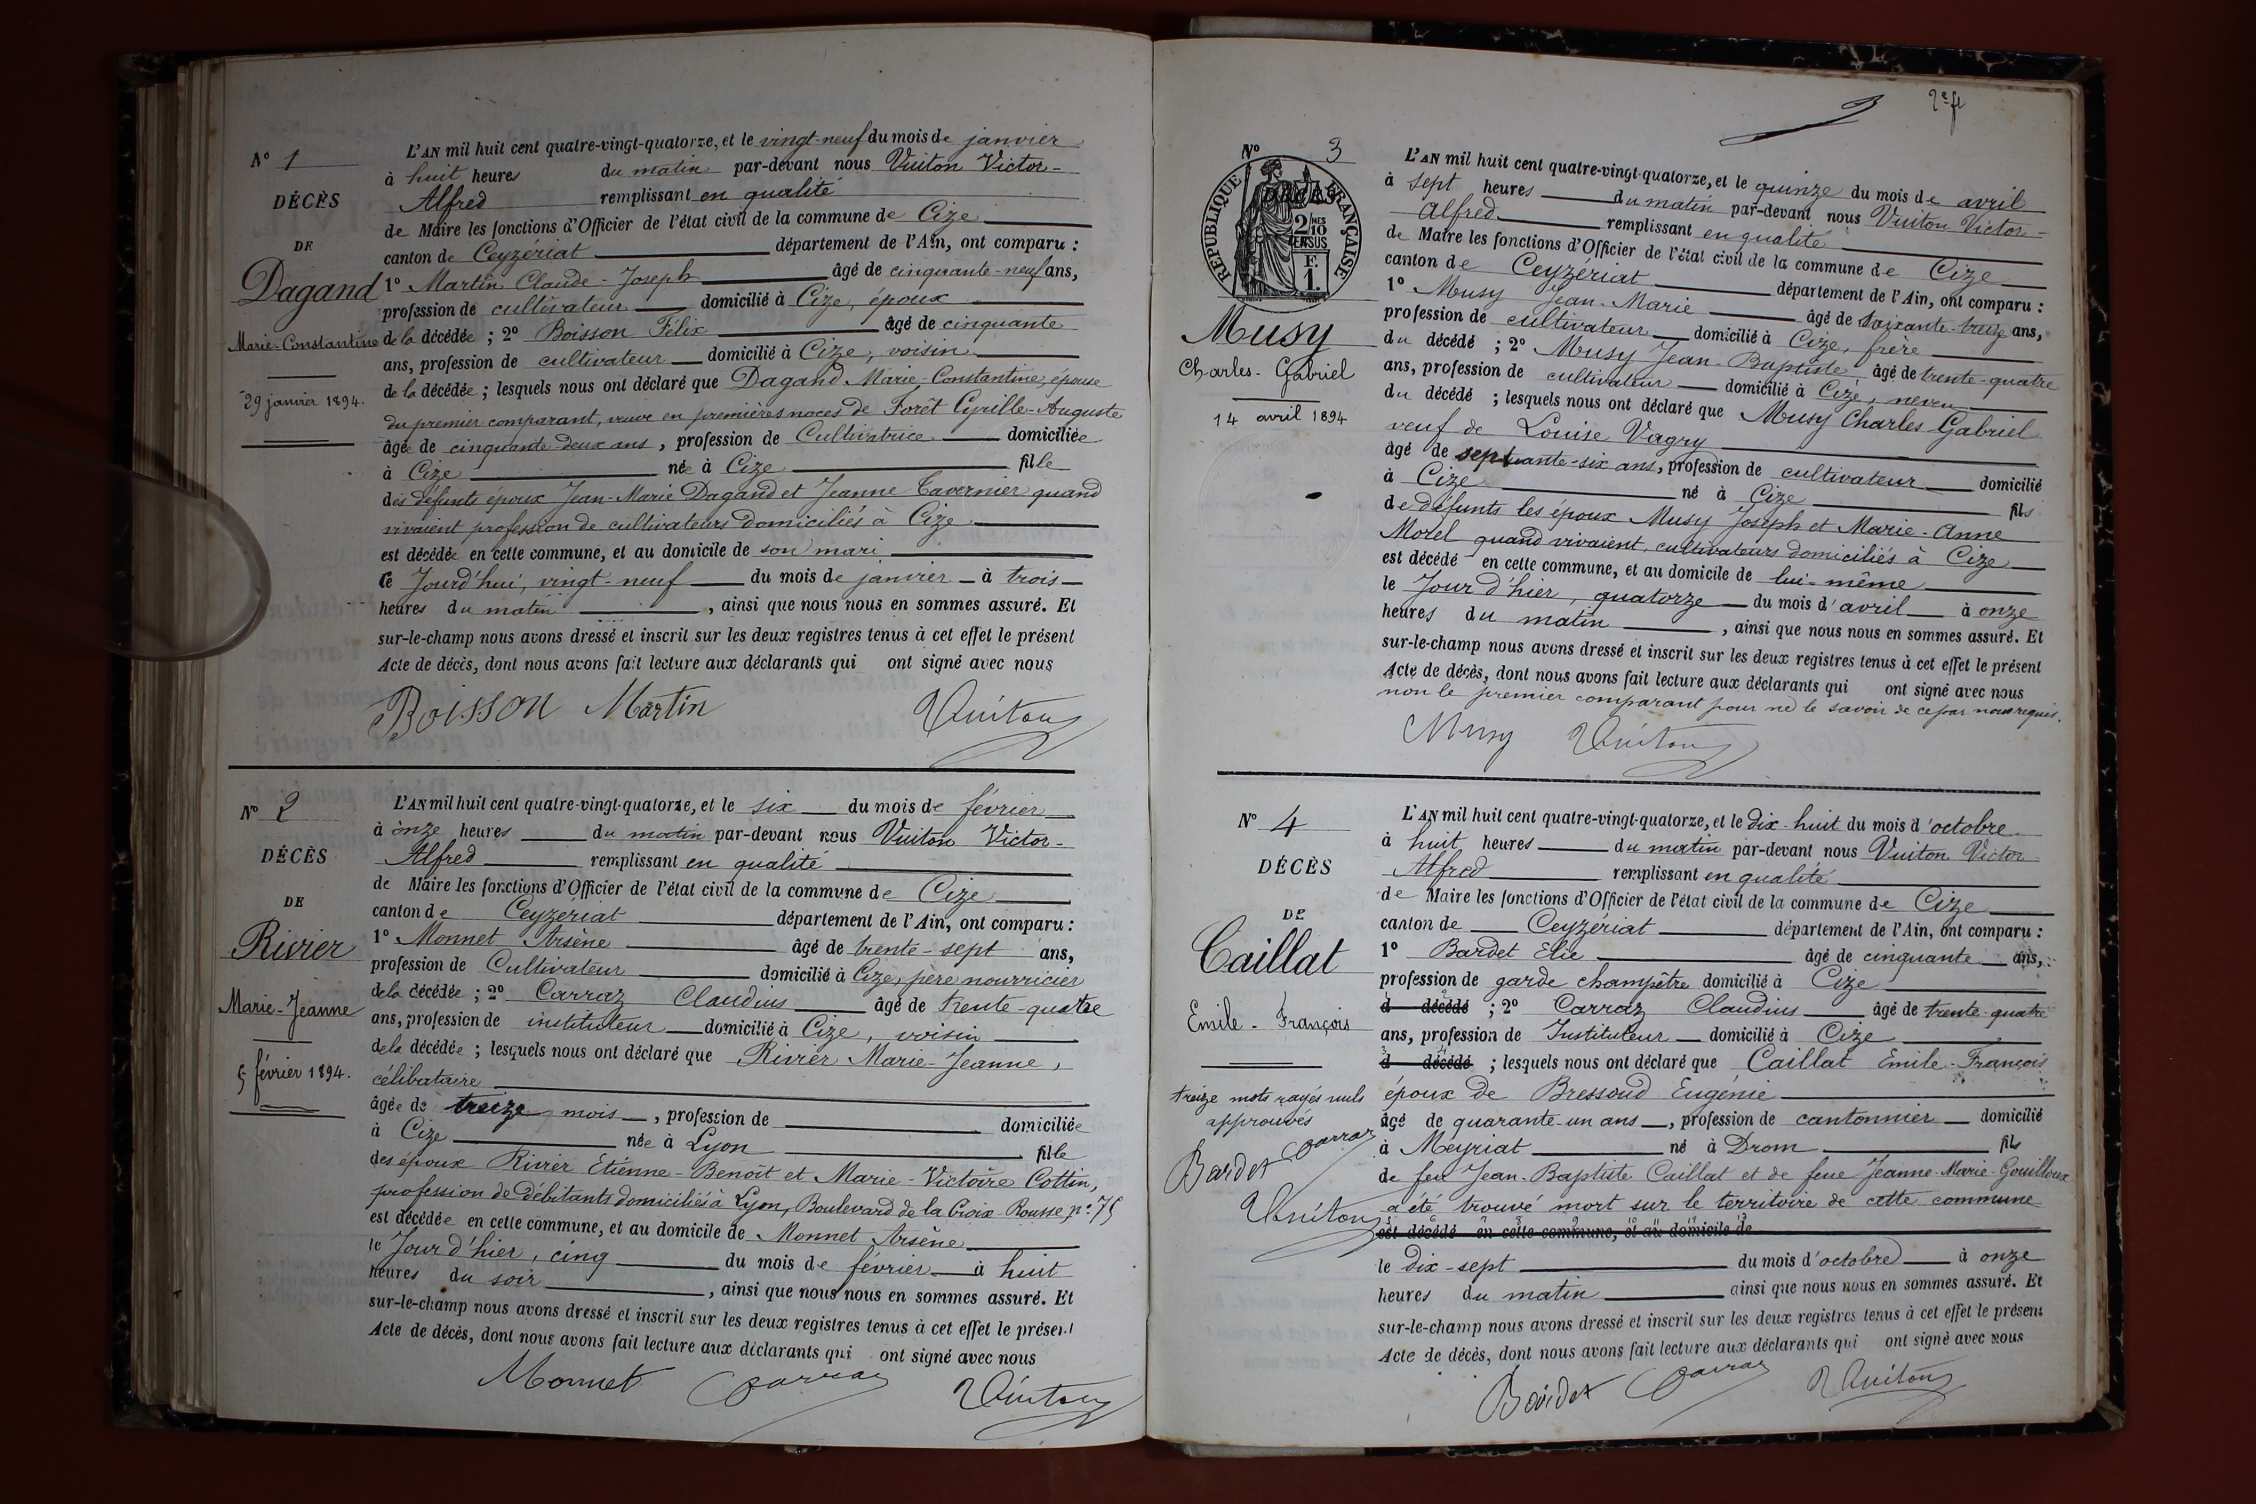 N° 1
DÉCÈS
DE
Dagand
Marie-Constantine
29 janvier 1894.
L'AN mil huit cent quatre-vingt-quatorze, et le vingt-neuf du mois de janvier
à huit heures du matin par-devant nous Vuiton Victor-
Alfred remplissant en qualité
de Maire les fonctions d'Officier de l'état civil de la commune de Cize
canton de Ceyzériat département de l'Ain, ont comparu :
1° Martin Claude-Joseph âgé de cinquante-neuf ans,
profession de cultivateur domicilié à Cize, époux
de la décédée ; 2° Boisson Félix âgé de cinquante
ans, profession de cultivateur domicilié à Cize, voisin
de la décédée ; lesquels nous ont déclaré que Dagand Marie-Constantine, épouse
du premier comparant, veuve en premières noces de Forêt Cyrille-Auguste
âgée de cinquante-deux ans, profession de Cultivatrice domiciliée
à Cize née à Cize fille
des défunts époux Jean-Marie Dagand et Jeanne Tavernier quand
vivaient profession de cultivateurs domiciliés à Cize.
est décédée en cette commune, et au domicile de son mari
le Jourd'hui, vingt-neuf du mois de janvier à trois
heures du matin, ainsi que nous nous en sommes assuré. Et
sur-le-champ nous avons dressé et inscrit sur les deux registres tenus à cet effet le présent
Acte de décès, dont nous avons fait lecture aux déclarants qui ont signé avec nous
BOISSON Martin Vuiton
N° 2
DÉCÈS
DE
Rivier
Marie-Jeanne
5 février 1894.
L'AN mil huit cent quatre-vingt-quatorze, et le six du mois de février
à onze heures du matin par-devant nous Vuiton Victor-
Alfred remplissant en qualité
de Maire les fonctions d'Officier de l'état civil de la commune de Cize
canton de Ceyzériat département de l'Ain, ont comparu :
1° Monnet Arsène âgé de trente-sept ans,
profession de Cultivateur domicilié à Cize, père nourricier
de la décédée ; 2° Carraz Claudius âgé de trente-quatre
ans, profession de instituteur domicilié à Cize, voisin
de la décédée ; lesquels nous ont déclaré que Rivier Marie-Jeanne,
célibataire
âgée de treize mois, profession de domiciliée
à Cize née à Lyon fille
des époux Rivier Etienne-Benoît et Marie-Victoire Cottin,
profession de débitants domiciliés à Lyon, Boulevard de la Croix-Rousse, n° 75
est décédée en cette commune, et au domicile de Monnet Arsène
le Jour d'hier, cinq du mois de février à huit
heures du soir, ainsi que nous nous en sommes assuré. Et
sur-le-champ nous avons dressé et inscrit sur les deux registres tenus à cet effet le présent
Acte de décès, dont nous avons fait lecture aux déclarants qui ont signé avec nous
Monnet Carraz Vuiton
N° 3
RÉPUBLIQUE FRANÇAISE
DÉCÈS
2/10 MES
EN SUS
F.
1.
Musy
Charles-Gabriel
14 avril 1894
L'AN mil huit cent quatre-vingt-quatorze, et le quinze du mois de avril
à sept heures du matin par-devant nous Vuiton Victor-
Alfred remplissant en qualité
de Maire les fonctions d'Officier de l'état civil de la commune de Cize
canton de Ceyzériat département de l'Ain, ont comparu :
1° Musy Jean-Marie âgé de soixante-treize ans,
profession de cultivateur domicilié à Cize, frère
du décédé ; 2° Musy Jean-Baptiste âgé de trente-quatre
ans, profession de cultivateur domicilié à Cize, neveu
du décédé ; lesquels nous ont déclaré que Musy Charles Gabriel
veuf de Louise Vagry
âgé de septuante-six ans, profession de cultivateur domicilié
à Cize né à Cize fils
de défunts les époux Musy Joseph et Marie-Anne
Morel quand vivaient, cultivateurs domiciliés à Cize
est décédé en cette commune, et au domicile de lui-même
le Jour d'hier, quatorze du mois d'avril à onze
heures du matin, ainsi que nous nous en sommes assuré. Et
sur-le-champ nous avons dressé et inscrit sur les deux registres tenus à cet effet le présent
Acte de décès, dont nous avons fait lecture aux déclarants qui ont signé avec nous
non le premier comparant pour ne le savoir de ce par nous requis.
Musy Vuiton
N° 4
DÉCÈS
DE
Caillat
Emile-François
treize mots rayés nuls
approuvés
Bardet Carraz
Vuiton
L'AN mil huit cent quatre-vingt-quatorze, et le dix-huit du mois d'octobre
à huit heures du matin par-devant nous Vuiton Victor
Alfred remplissant en qualité
de Maire les fonctions d'Officier de l'état civil de la commune de Cize
canton de Ceyzériat département de l'Ain, ont comparu :
1° Bardet Elie âgé de cinquante ans,
profession de garde champêtre domicilié à Cize
d décédé ; 2° Carraz Claudius âgé de trente-quatre
ans, profession de Instituteur domicilié à Cize
d décédé ; lesquels nous ont déclaré que Caillat Emile-François
époux de Bressoud Eugénie
âgé de quarante-un ans, profession de cantonnier domicilié
à Meyriat né à Drom fils
de feu Jean-Baptiste Caillat et de feue Jeanne-Marie-Gouilloux
a été trouvé mort sur le territoire de cette commune
est décédé en cette commune, et au domicile de
le dix-sept du mois d'octobre à onze
heures du matin ainsi que nous nous en sommes assuré. Et
sur-le-champ nous avons dressé et inscrit sur les deux registres tenus à cet effet le présent
Acte de décès, dont nous avons fait lecture aux déclarants qui ont signé avec nous
Bardet Carraz Vuiton